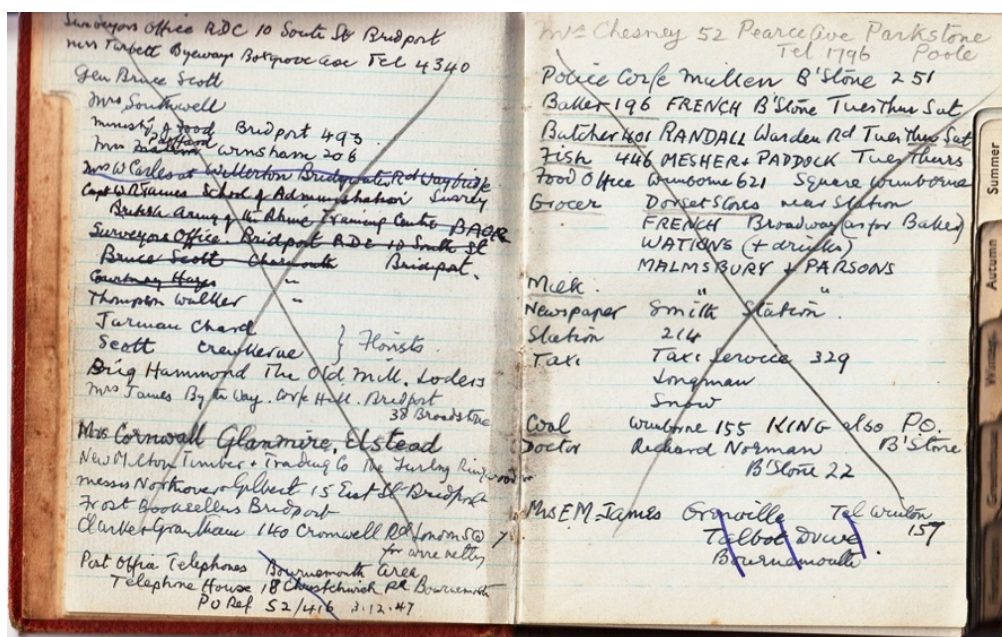 Surveyors Office RDC 10 South St Bridport
Mrs Turbett Byeways Boxgrove Ave Tel 4340
Gen Bruce Scott
Mrs Southwell
Ministry of Food Bridport 493
Mrs Winsham 206
Mrs W Carles at Wellerton Bridgwater Rd Waybridge
Capt W R James School of Administration Surrey
British Army of the Rhine Training Centre BAOR
Surveyors Office. Bridport RDC 10 South St
Bruce Scott Charmouth Bridport.
Courtney Hayes "
Thompson Walker "
Jarman Chard
Scott Crewkerne } Florists.
Brig Hammond The Old Mill. Loders
Mrs James By the Way. Corfe Hill. Bridport
38 Broadstone
Mrs Cornwall Glanmire, Elstead
New Milton Timber + Trading Co The Ringwood
Messrs Northover + Gilbert 15 East St Bridport
Frost Booksellers Bridport
Clarke + Grantham 140 Cromwell Rd London SW7
for wire netting
Post Office Telephones Bournemouth Area
Telephone House 18 Christchurch Rd Bournemouth
PO Ref S2/416 3.12.47
Mrs Chesney 52 Pearce Ave Parkstone
Tel 1796 Poole
Police Corfe Mullen B'Stone 251
Baker 196 FRENCH B'Stone Tues Thur Sat
Butcher 401 RANDALL Warden Rd Tues Thur Sat
Fish 446 MESHER + PADDOCK Tues Thurs
Food Office Wimborne 621 Square Wimborne
Grocer Dorset Stores near Station
FRENCH Broadway (as for Baker)
WATKINS (+ drinks)
MALMSBURY + PARSONS
Milk. " "
Newspaper Smith Station.
Station 214
Taxi Taxi Service 329
Longman
Snow
Coal Wimborne 155 KING also P.O. B'Stone
Doctor Richard Norman
B'Stone 22
Mrs E.M. James Grenville Tel Winton 157
Talbot Drive
Bournemouth
Summer
Autumn